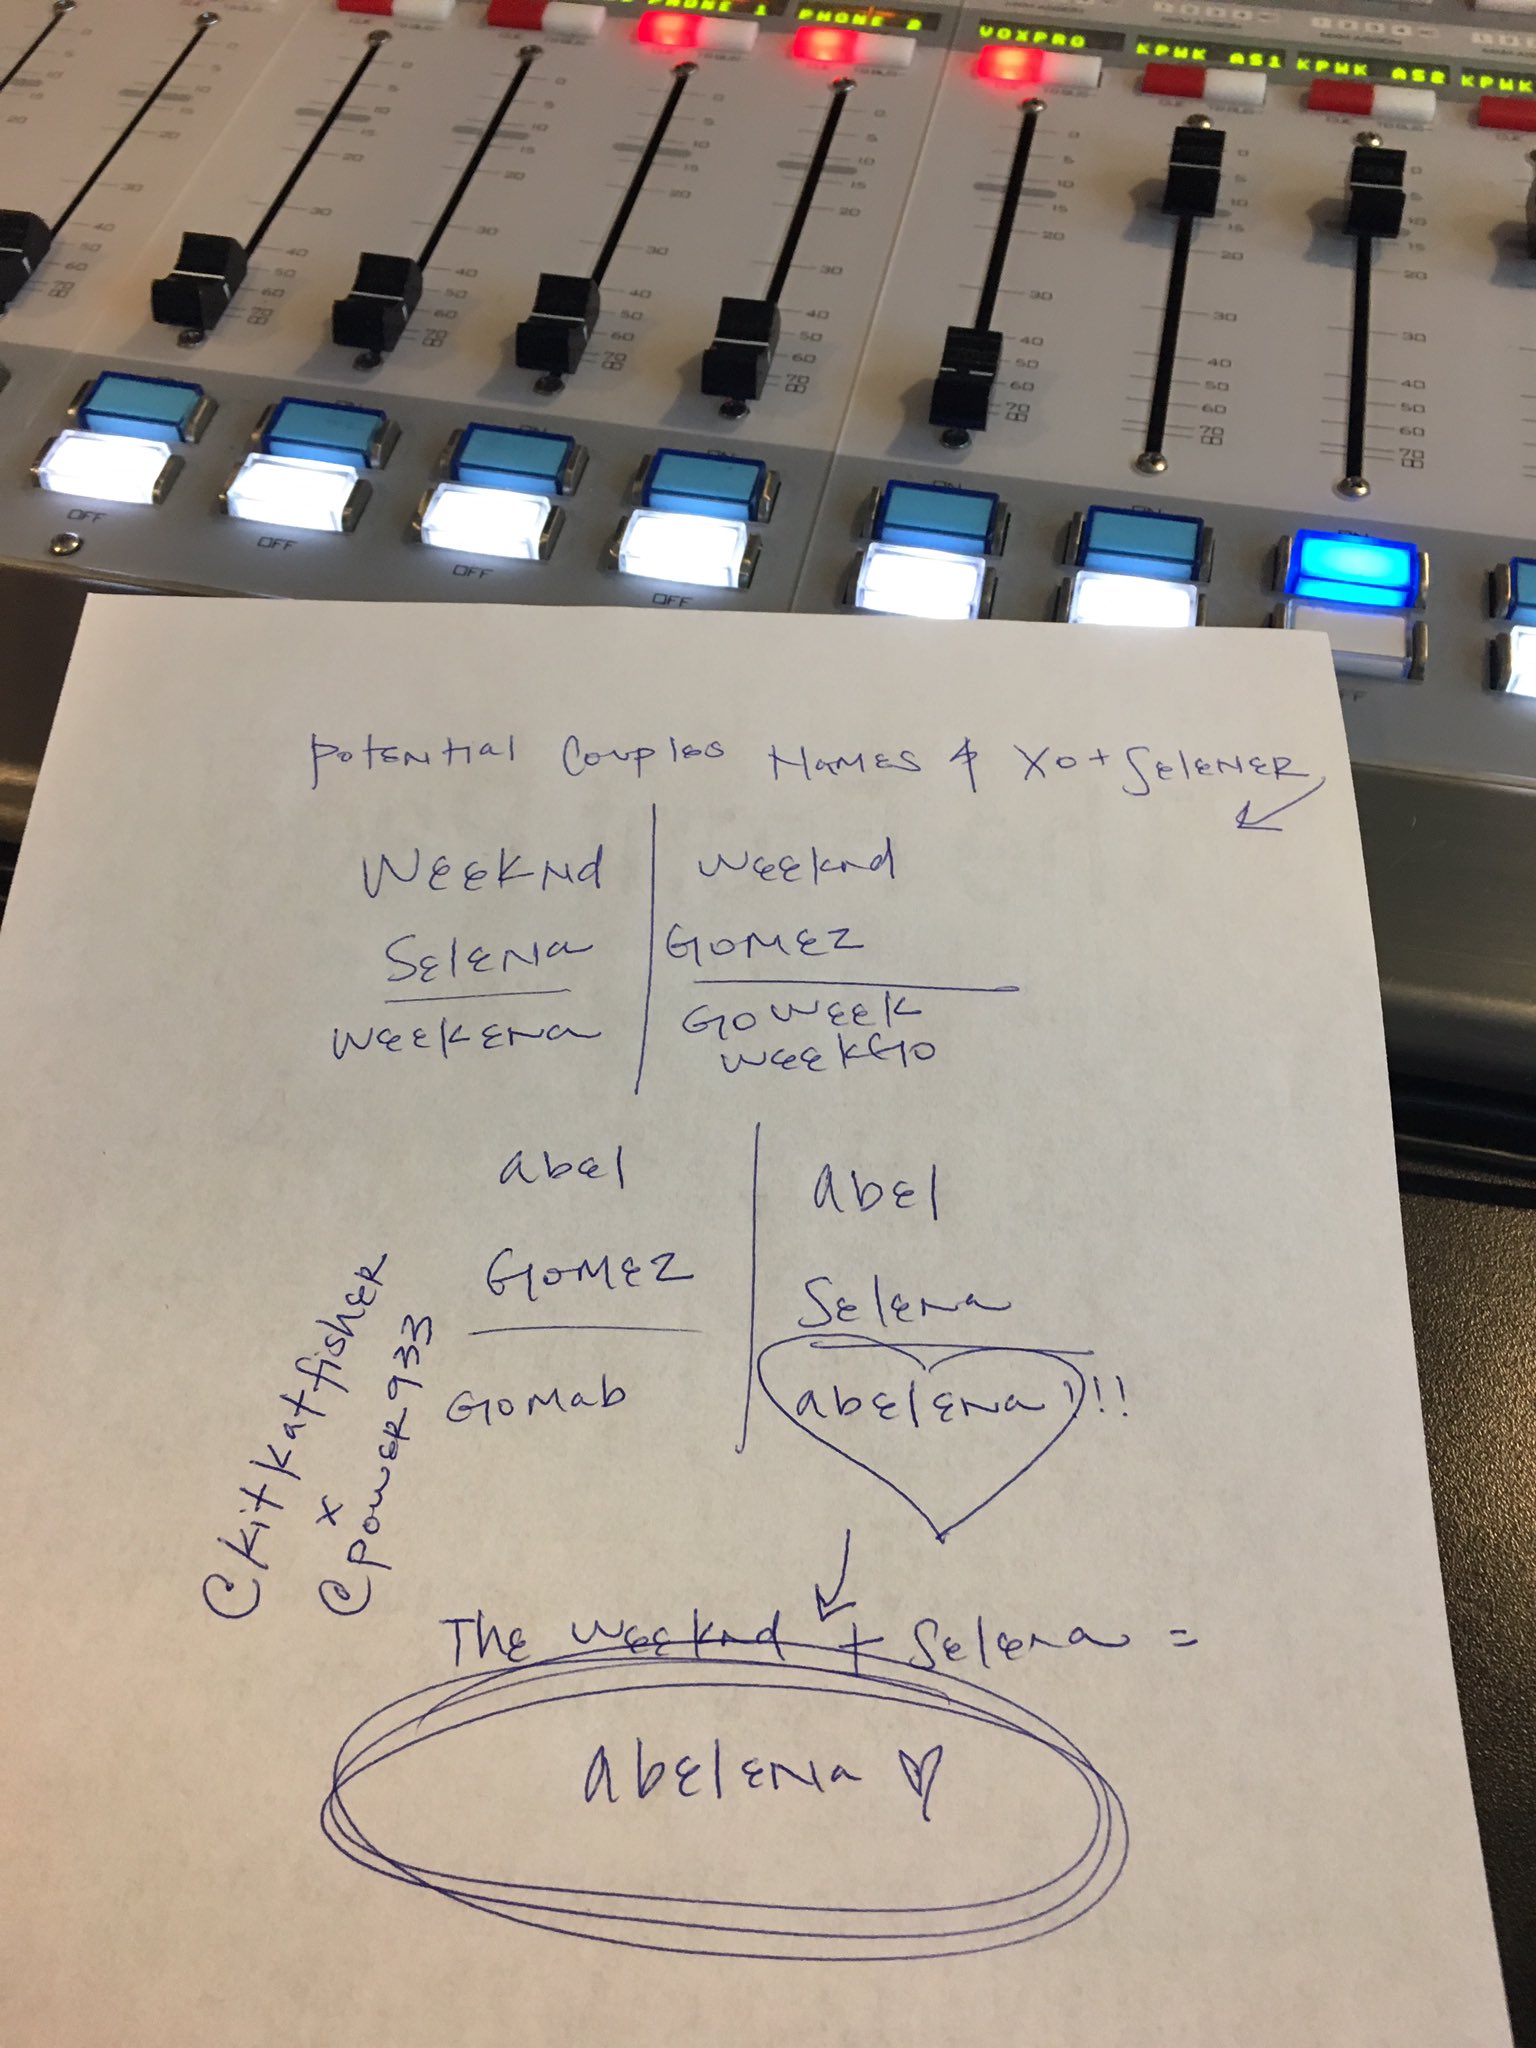 PHONE 1
PHONE 2
VOXPRO
KPWK AS1
KPWK AS2
KPWK
OFF
OFF
OFF
OFF
Potential Couples Names 4 XO + Selener
Weeknd
Selena
Weekena
Weeknd
Gomez
GoWeek
WeekGo
Abel
Gomez
Gomab
Abel
Selena
Abelena!!!
@kitkatfisher
x
@power933
The Weeknd + Selena =
Abelena ♡